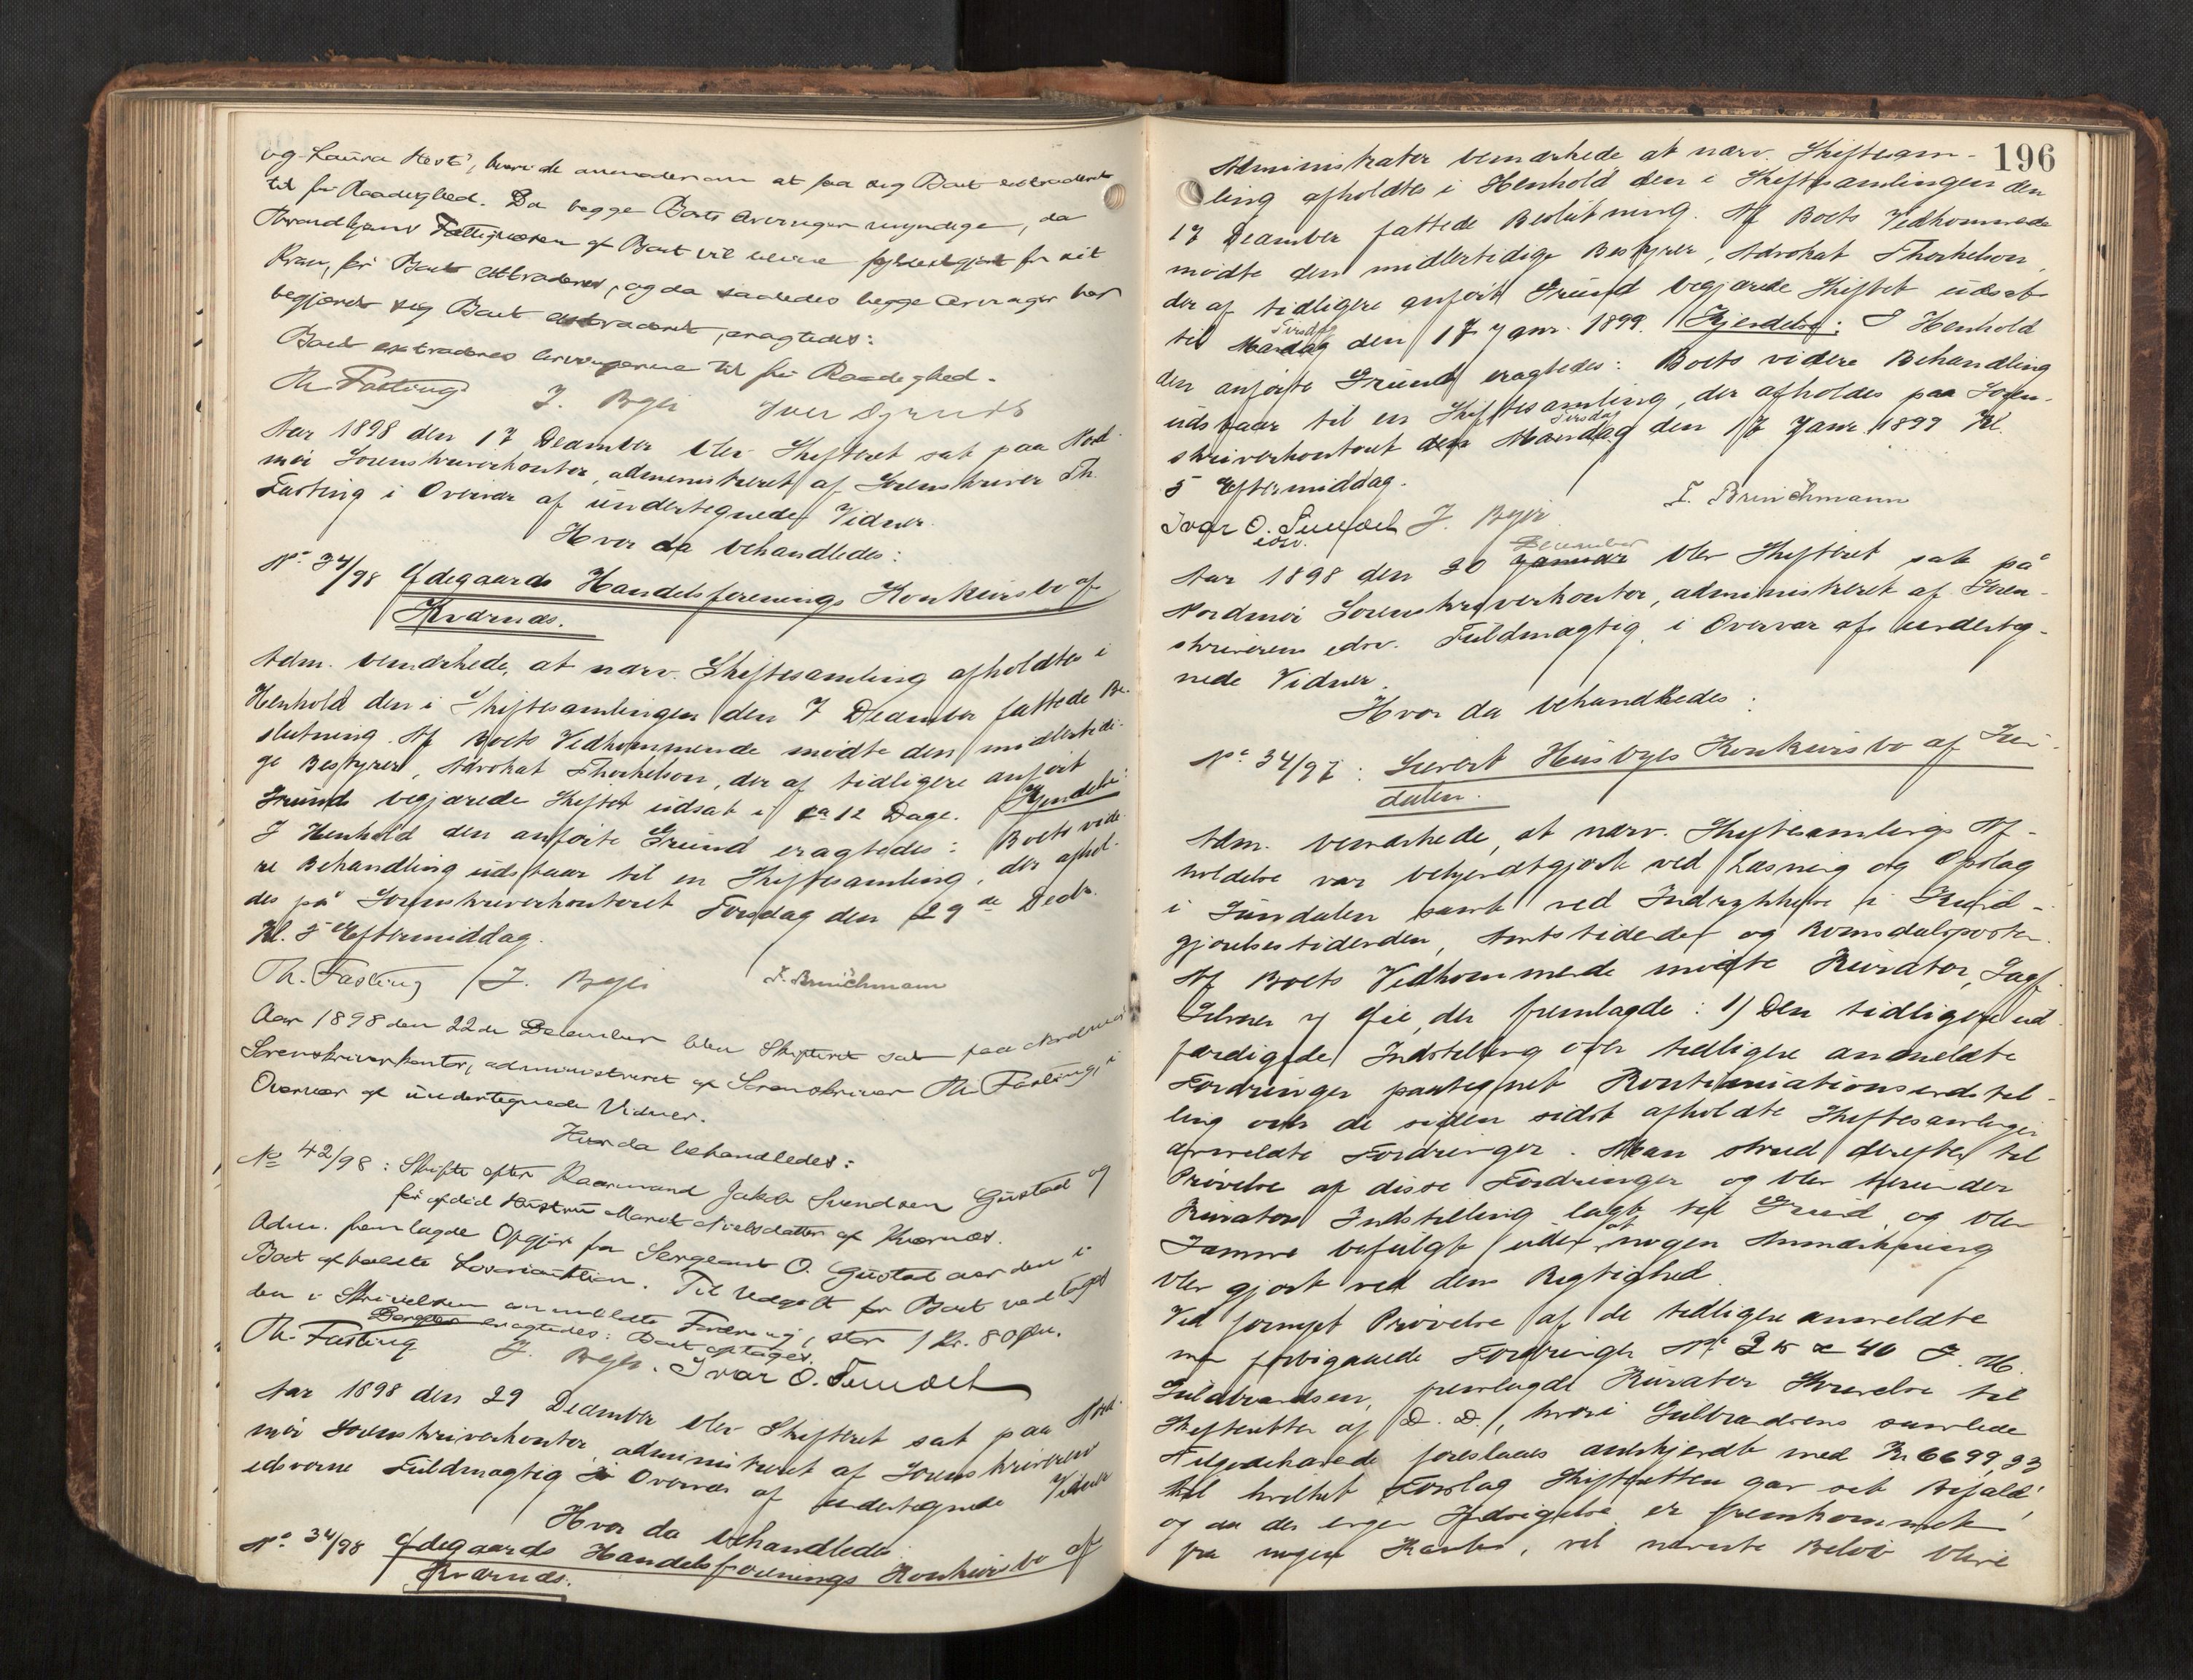 og Laura
til fri Raadighed. Da begge Boets Arvinger myndige, da
Fattigvæsen af Boet vil blive fyldestgjort for sit
Krav, før Boet extraderes, og da saaledes begge Arvinger har
begjæret sig Boet extraderet, eragtedes:
Boet extraderes Arvingerne til fri Raadighed.
Th. Fasting J. Byer Iver
Aar 1898 den 17 December blev Skifteret sat paa Nord-
mør Sorenskriverkontor, administreret af Sorenskriver Th.
Fasting i Overvær af undertegnede Vidner.
Hvor da behandledes:
No 34/98 Ødegaards Handelsforenings Konkursbo af
Kværnæs.
Adm. bemærkede, at nærv. Skiftesamling afholdtes i
Henhold den i Skiftesamlingen den 7 December fattede Be-
slutning. Af Boets Vedkommende mødte den midlertidi-
ge Bestyrer, Advokat Thorkelson, der af tidligere anført
Grund begjærede Skiftet udsat i ca 12 Dage. Kjendelse:
I Henhold den anførte Grund eragtedes: Boets vide-
re Behandling udstaar til en Skiftesamling, der afhol-
des på Sorenskriverkontoret Torsdag den 29de Decbr.
Kl. 5 Eftermiddag.
Th. Fasting J. Byer I. Brinchmann
Aar 1898 den 22de December blev Skifteret sat paa Nordmør
Sorenskriverkontor, administreret af Sorenskriver Th. Fasting, i
Overvær af undertegnede Vidner.
Hvor da behandledes:
No 42/98: Skifte efter Kaarmand Jakob Svendsen Gustad og
før afdød Hustru Marit Nielsdatter af Kværnæs.
Adm. fremlagde Opgjør fra Sergeant O. Gustad over den i
Boet afholdte Livauktion. Til Udgift for Boet vedtoges
den i Skrivelsen anmeldte Fordring, stor 1 Kr. 80 Øre.
eragtedes: Boet optages.
Th. Fasting J. Byer. Ivar O.
Aar 1898 den 29 December blev Skifteret sat paa Nord-
mør Sorenskriverkontor, administreret af Sorenskriverens
edsvorne Fuldmægtig i Overvær af undertegnede Vidner
Hvor da behandledes
No 34/98 Ødegaards Handelsforenings Konkursbo af
Kværnæs.
196
Administrator bemærkede at nærv. Skiftesam-
ling afholdtes i Henhold den i Skiftesamlingen den
17 December fattede Beslutning. Af Boets Vedkommende
mødte den midlertidige Bestyrer, Advokat Thorkelson,
der af tidligere anført Grund begjærede Skiftet udsat
Tirsdag
til Mandag den 17 Janr. 1899. Kjendelse: I Henhold
den anførte Grund eragtedes: Boets videre Behandling
udstaar til en Skiftesamling, der afholdes paa Soren-
Tirsdag
skriverkontoret den Mandag den Janr. 1899 Kl.
5 Eftermiddag.
I. Brinchmann
Ivar O. J. Byer
edsv.
December
Aar 1898 den 30 Januar blev Skifteret sat på
Nordmør Sorenskriverkontor, administreret af Soren-
skriverens edsv. Fuldmægtig i Overvær af underteg-
nede Vidner.
Hvor da behandledes:
No 34/97: Sivert Husbyes Konkursbo af Sun-
dalen.
Adm. bemærkede, at nærv. Skiftesamlings Af-
holdelse var bekjendtgjort ved Læsning og Opslag
i Sundalen samt ved Indrykkelse i Kund-
gjørelsestidenden, Amtstidende og Romsdalsposten.
Af Boets Vedkommende mødte Kurator, Sagf.
der fremlagde: 1) Den tidligere ud-
færdigede Indstilling over tidligere anmeldte
Fordringer paategnet Kontinuationsindstil-
ling over de siden sidst afholdte Skiftesamlinger
anmeldte Fordringer. Man skred derefter til
Prøvelse af disse Fordringer og blev herunder
Kurators Indstilling lagt til Grund, og blev
at
samme befulgt uden nogen Anmærkning
blev gjort ved dens Rigtighed.
Ved fornyet Prøvelse af de tidligere anmeldte
men forbigaaede Fordringer No 40 J. M.
Gulbrandsen, fremlagde Kurator Skrivelse til
Skifteretten af D. D., hvori Gulbrandsens samlede
Tilgodehavende foreslaaes anerkjendt med Kr 6699,33
til hvilket Forslag Skifteretten gav sit Bifald,
og da der ingen Indsigelse er fremkommet
fra nogen Kant, vil nævnte Beløb blive